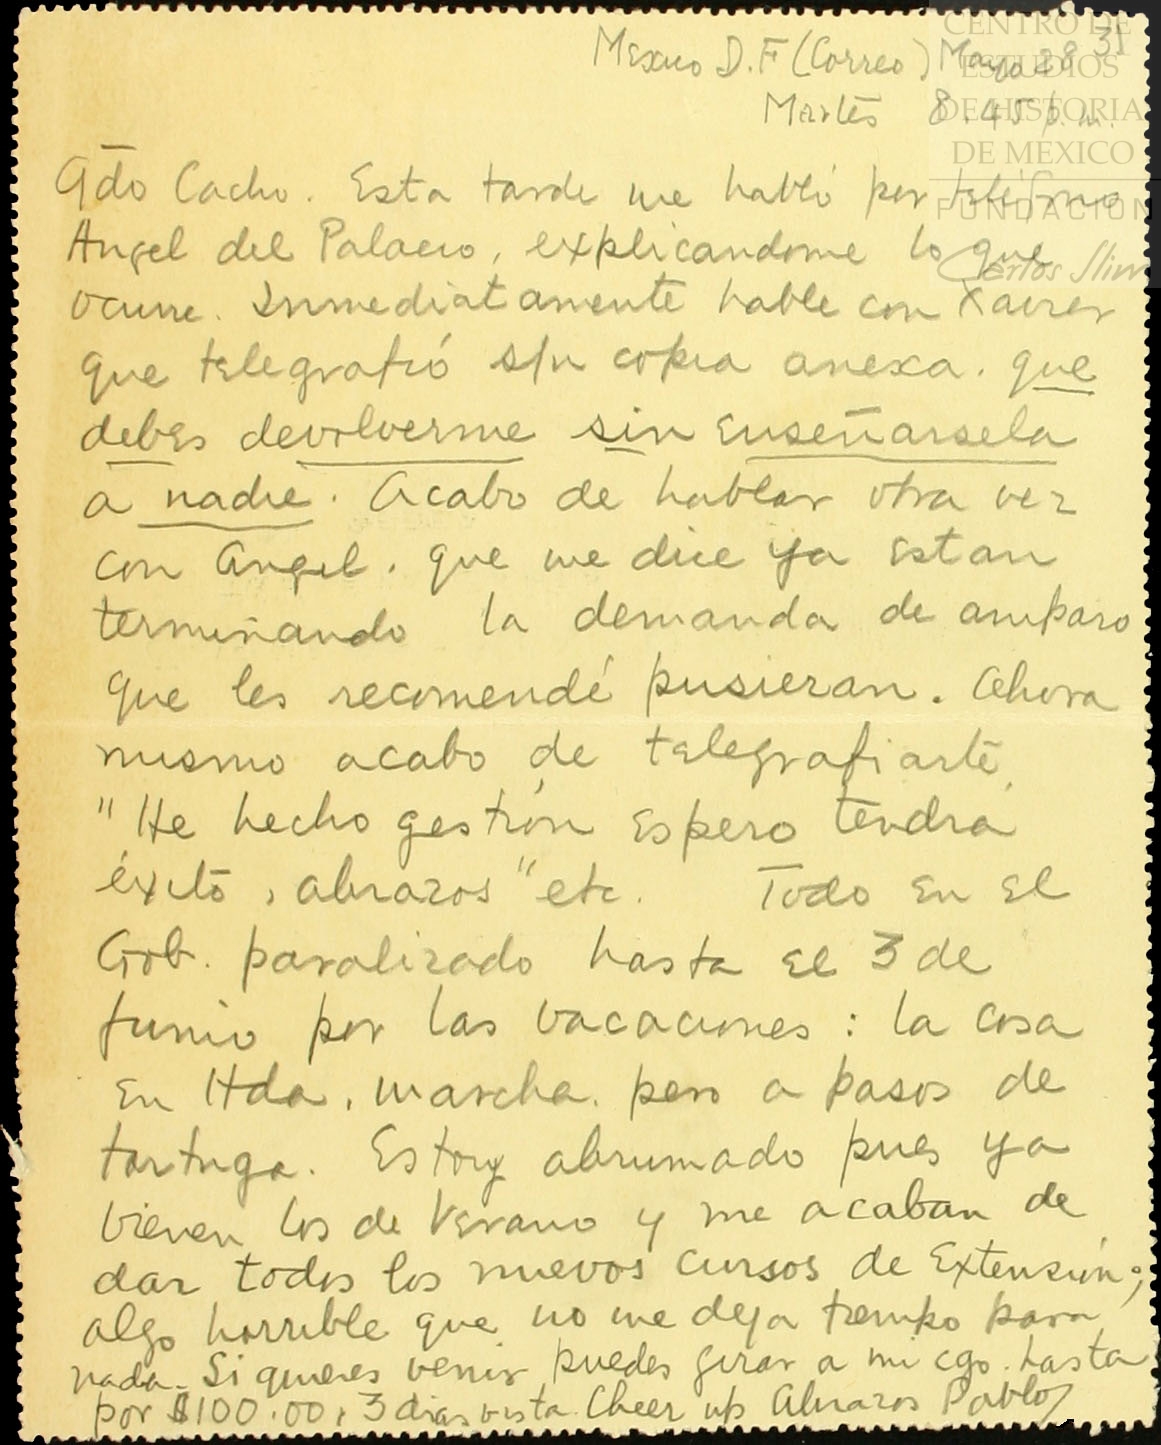 CENTRO DE
ESTUDIOS
DE HISTORIA
DE MEXICO
FUNDACION
Carlos Slim
Mexico D.F (Correo) Mayo 28 31
Martes 8.45 p.m.
Gdo Cacho. Esta tarde me habló por teléfono
Angel del Palacio, explicandome lo que
ocurre. Inmediatamente hable con Xavier
que telegrafió s/n copia anexa. que
debes devolverme sin enseñarsela
a nadie. Acabo de hablar otra vez
con Angel. que me dice ya estan
terminando la demanda de amparo
que les recomendé pusieran. Ahora
mismo acabo de telegrafiarte
"He hecho gestión espero tendrá
éxito, abrazos" etc. Todo en el
Gob. paralizado hasta el 3 de
Junio por las vacaciones: la cosa
en Hda, marcha. pero a pasos de
tortuga. Estoy abrumado pues ya
vienen los de Verano y me acaban de
dar todos los nuevos cursos de Extensión;
algo horrible que no me deja tiempo para
nada. Si quieres venir puedes girar a mi cgo. hasta
por $100.00, 3 dias vista. Cheer up Abrazos Pablo